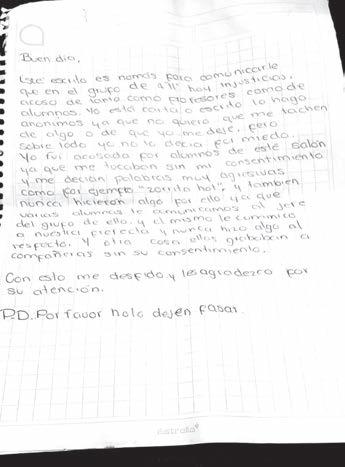 Buen dia,
Este escrito es nomás para comunicarle
que en el grupo de 4°"I" hay injusticias,
acoso de tanto como profesores como de
alumnos. Yo esta carta o escrito lo hago
anonimos ya que no quiero que me tachen
de algo o de que yo me deje, pero
sobre todo yo no lo decia por miedo.
Yo fui acosada por alumnos de este salón
ya que me tocaban sin mi consentimiento
y me decian palabras muy agresivas
como por ejemplo "zorrita hot", y tambien
nunca hicieron algo por ello ya que
varias alumnas le comunicamos al jefe
del grupo de ello, y el mismo le comunico
a nuestra prefecta y nunca hizo algo al
respecto. Y otra cosa ellos grababan a
compañeras sin su consentimiento.
Con esto me despido y le agradezco por
su atención.
P.D. Por favor nolo dejen pasar.
Estrella